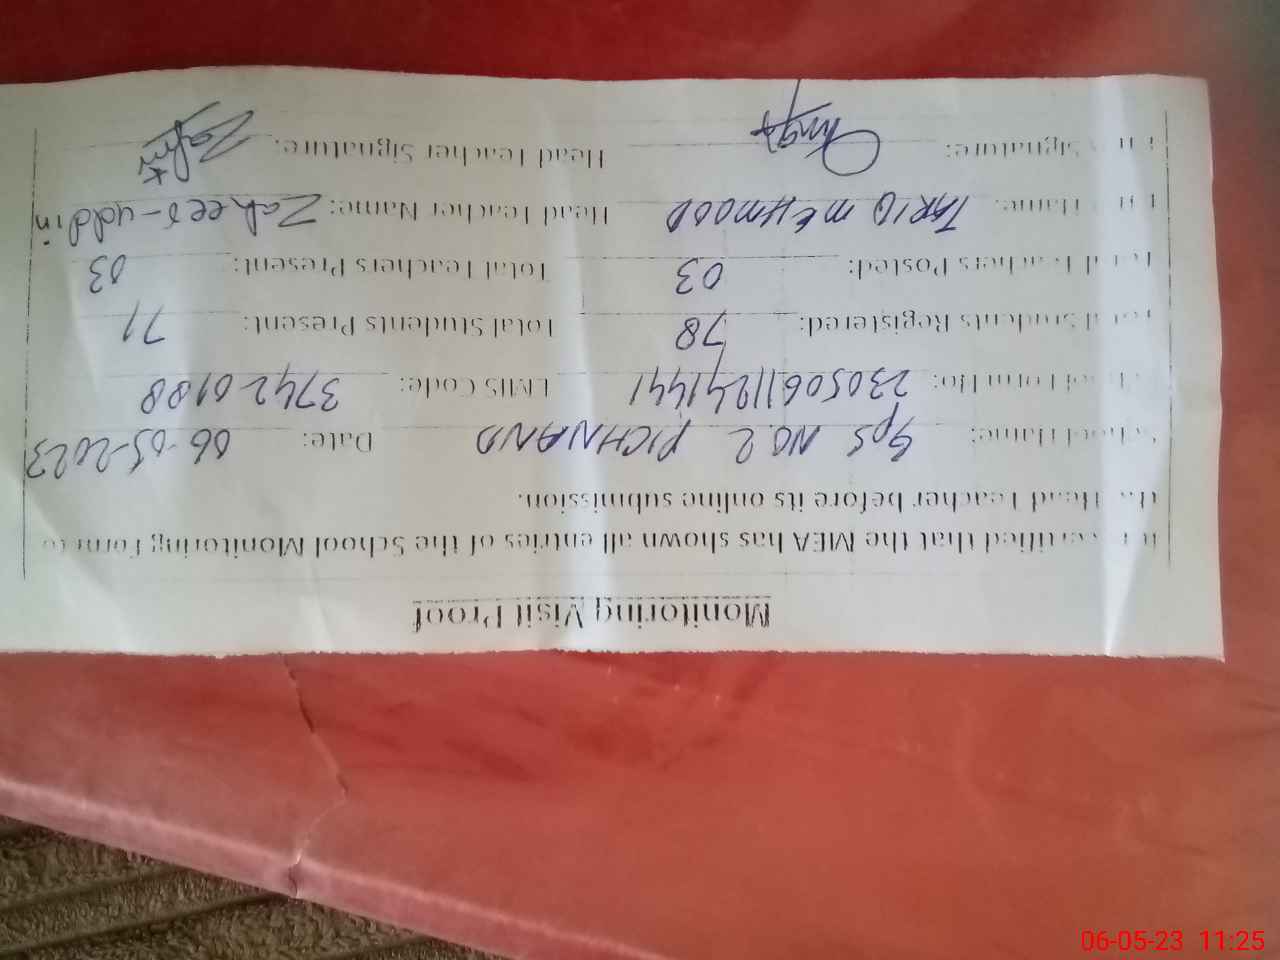 Monitoring Visit Proof
It is certified that the MEA has shown all entries of the School Monitoring Form to
the Head Teacher before its online submission.
School Name: GPS NO 2 PICHNAND Date: 06-05-2023
School Form No: 23050611241441 EMIS Code: 37420188
Total Students Registered: 78 Total Students Present: 71
Total Teachers Posted: 03 Total Teachers Present: 03
Name: TARIQ MEHMOOD Head Teacher Name: Zaheer-uddin
Signature: Head Teacher Signature:
06-05-23 11:25